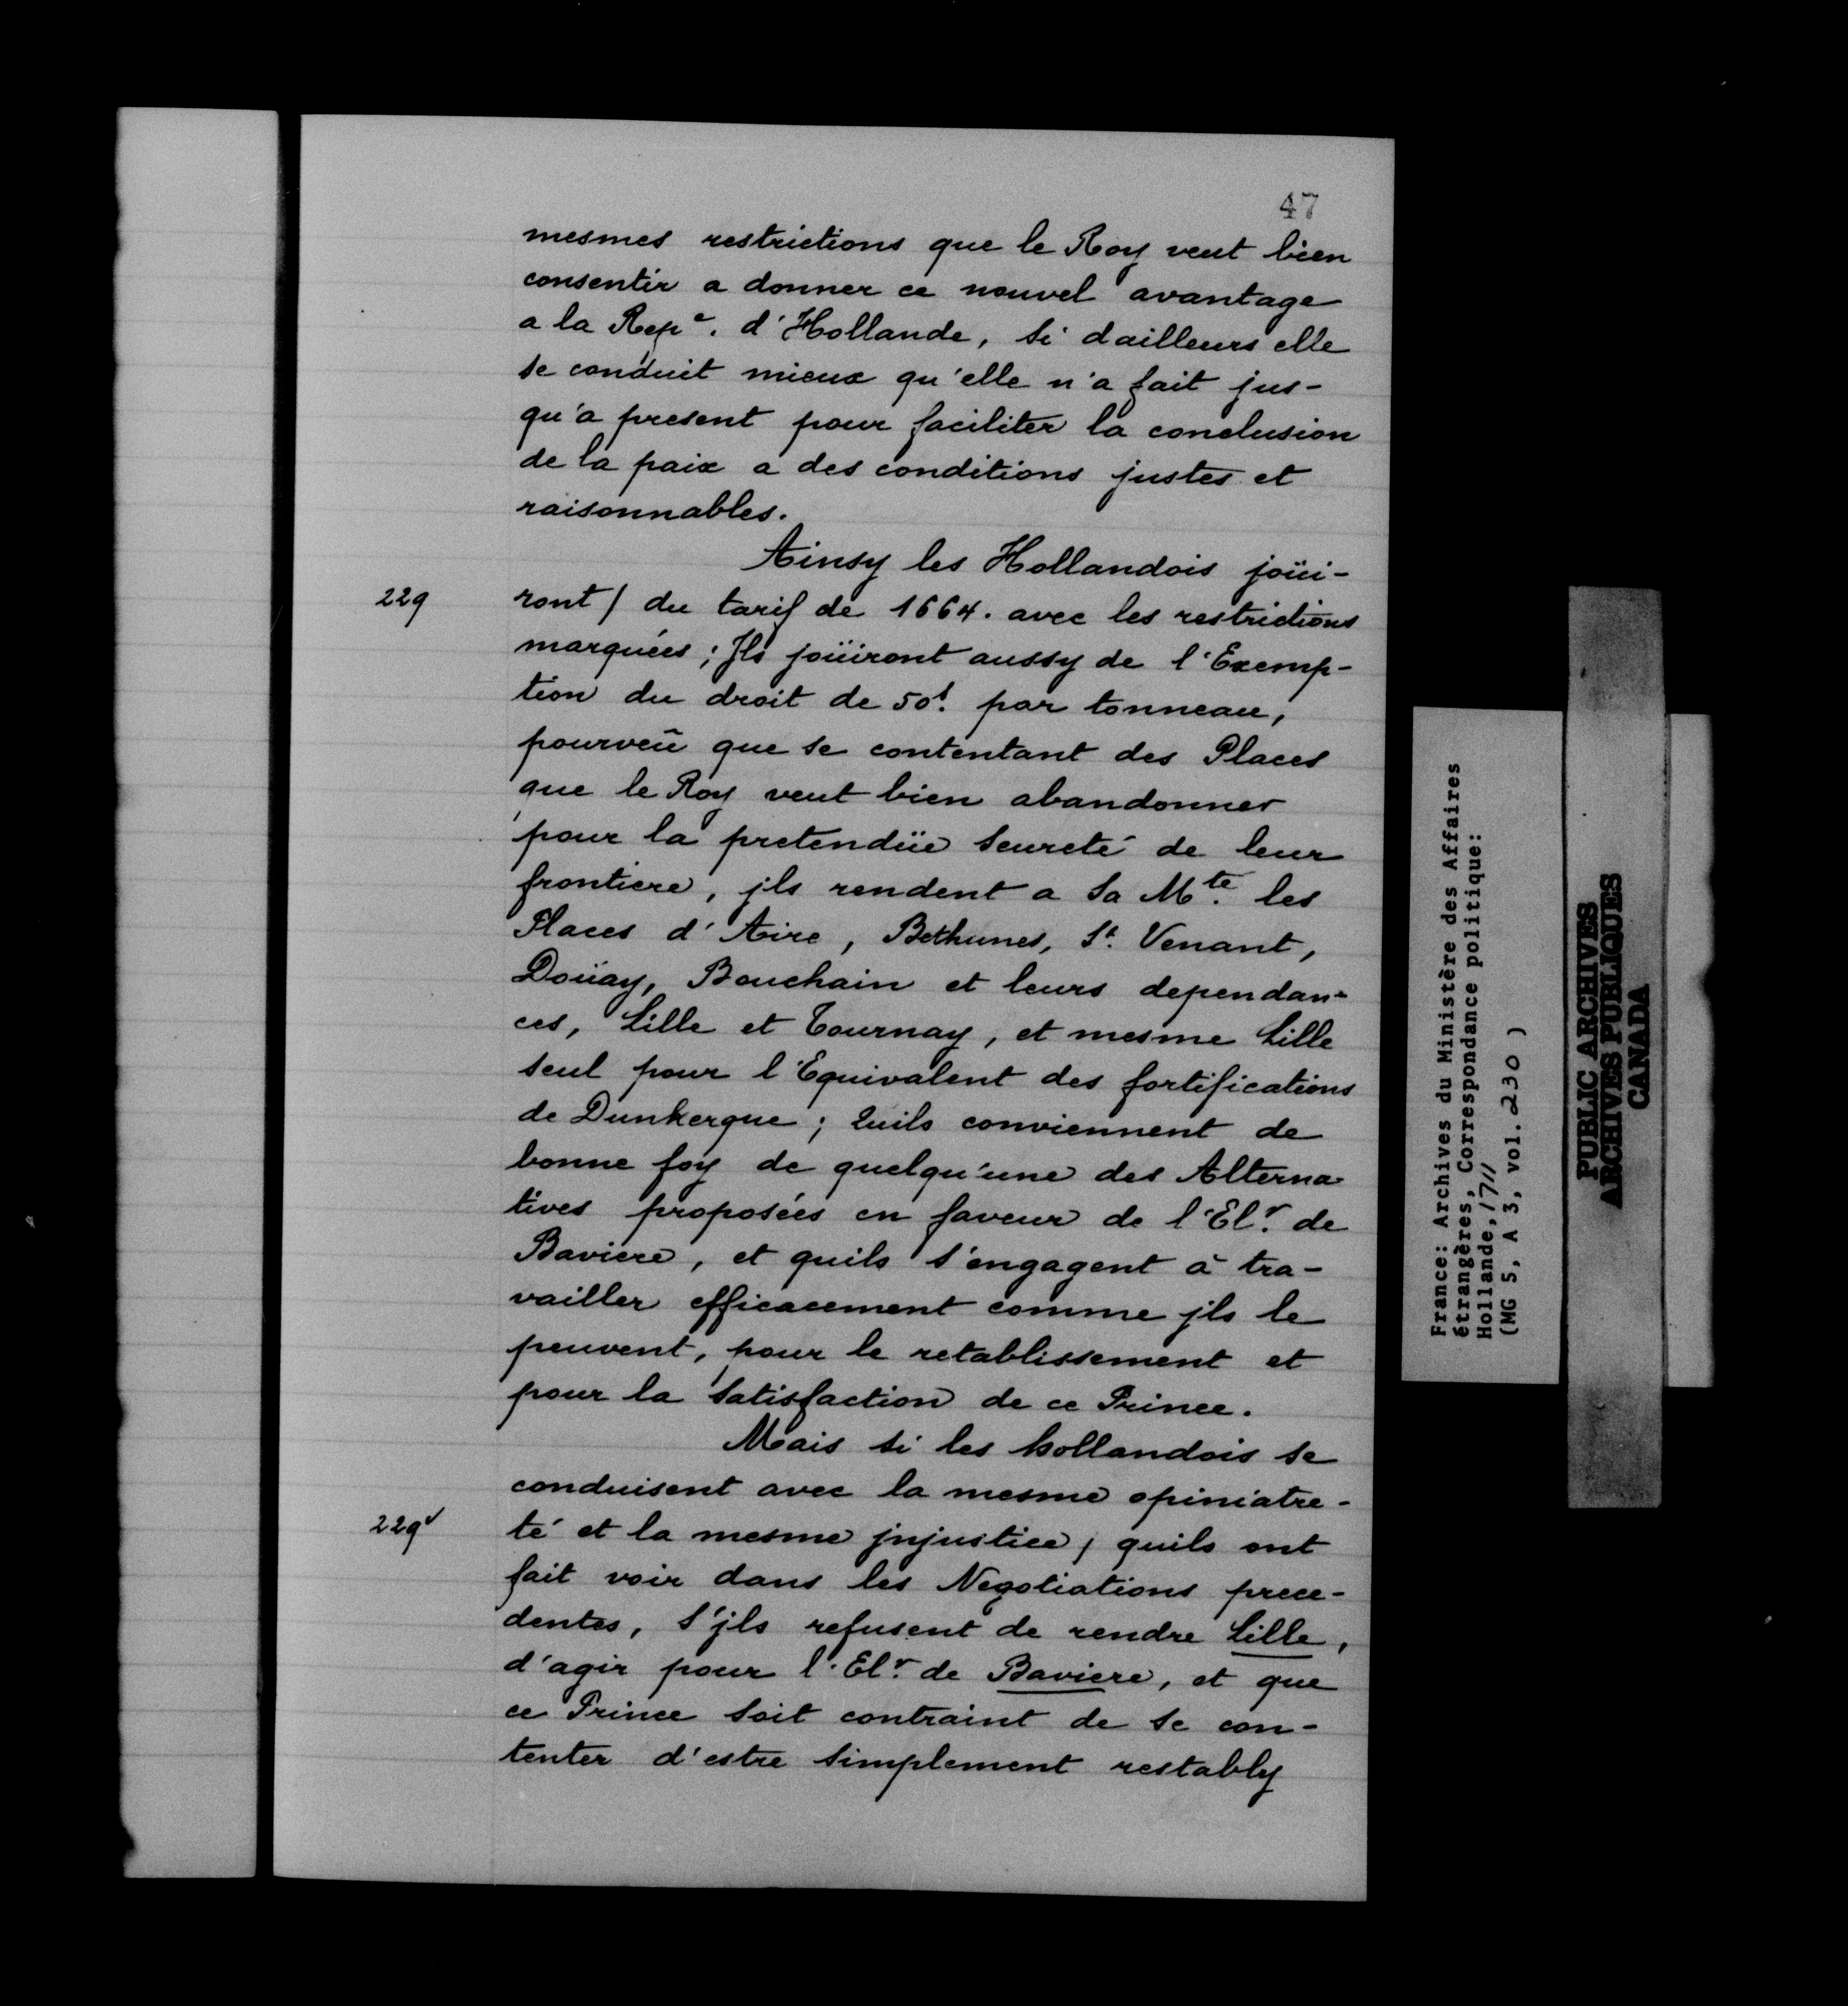 47
mesmes restrictions que le Roy veut bien
consentir a donner ce nouvel avantage
a la Rep^e. d'Hollande, si dailleurs elle
se conduit mieux qu'elle n'a fait jus-
qu'a present pour faciliter la conclusion
de la paix a des conditions justes et
raisonnables.
Ainsy les Hollandois joüi-
229 ront / du tarif de 1664. avec les restrictions
marquées ; Ils joüiront aussy de l'Exemp-
tion du droit de 50^s. par tonneau,
pourveû que se contentant des Places
que le Roy veut bien abandonner
pour la pretendüe seureté de leur
frontiere, jls rendent a Sa M^té. les
Places d'Aire, Bethunes, S^t. Venant,
Doüay, Bouchain et leurs dependan-
ces, Lille et Tournay, et mesme Lille
seul pour l'Equivalent des fortifications
de Dunkerque ; Quils conviennent de
bonne foy de quelqu'une des Alterna-
tives proposées en faveur de l'El^r. de
Baviere, et quils s'engagent à tra-
vailler efficacement comme jls le
peuvent, pour le retablissement et
pour la satisfaction de ce Prince.
Mais si les hollandois se
conduisent avec la mesme opiniatre-
229^v té et la mesme jnjustice / quils ont
fait voir dans les Negotiations prece-
dentes, s'jls refusent de rendre Lille,
d'agir pour l'El^r. de Baviere, et que
ce Prince soit contraint de se con-
tenter d'estre simplement restably
France: Archives du Ministère des Affaires
étrangères, Correspondance politique:
Hollande, 1711
(MG 5, A 3, vol. 230 )
PUBLIC ARCHIVES
ARCHIVES PUBLIQUES
CANADA